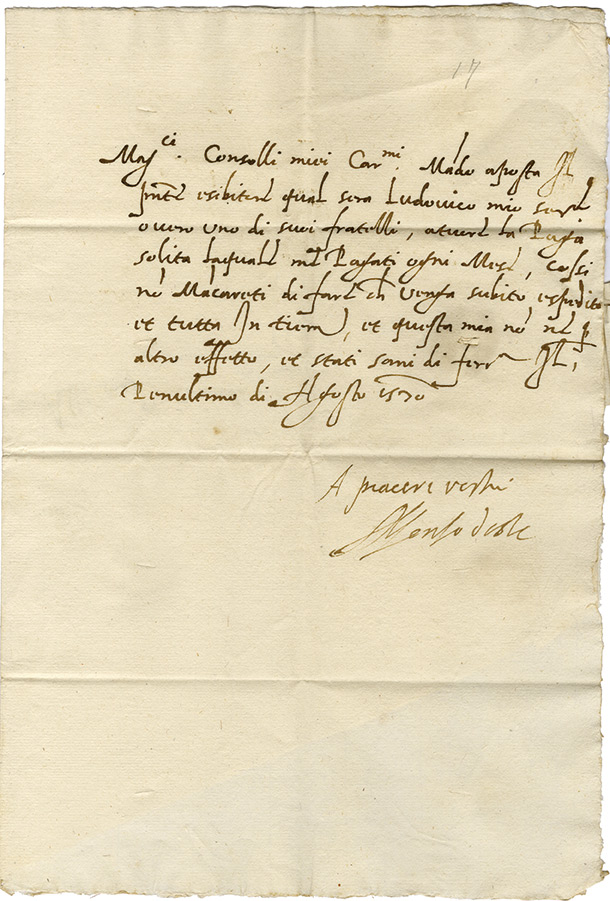 17
Mag.ci Consolli miei Car.mi. Mado aposta Il
pnte esibitere qual sera Ludovico mio
overo uno di suoi fratelli, a tuere la Paga
solita laquale me Pagati ogni Mese, cossi
no Macareti di fare ch venga subito espedito
et tutta In tiera, et questa mia no ne p
altro effetto, et stati sani di ferr Il
Penultimo di Agosto 1570
A piaceri vostri
Alfonso d'este